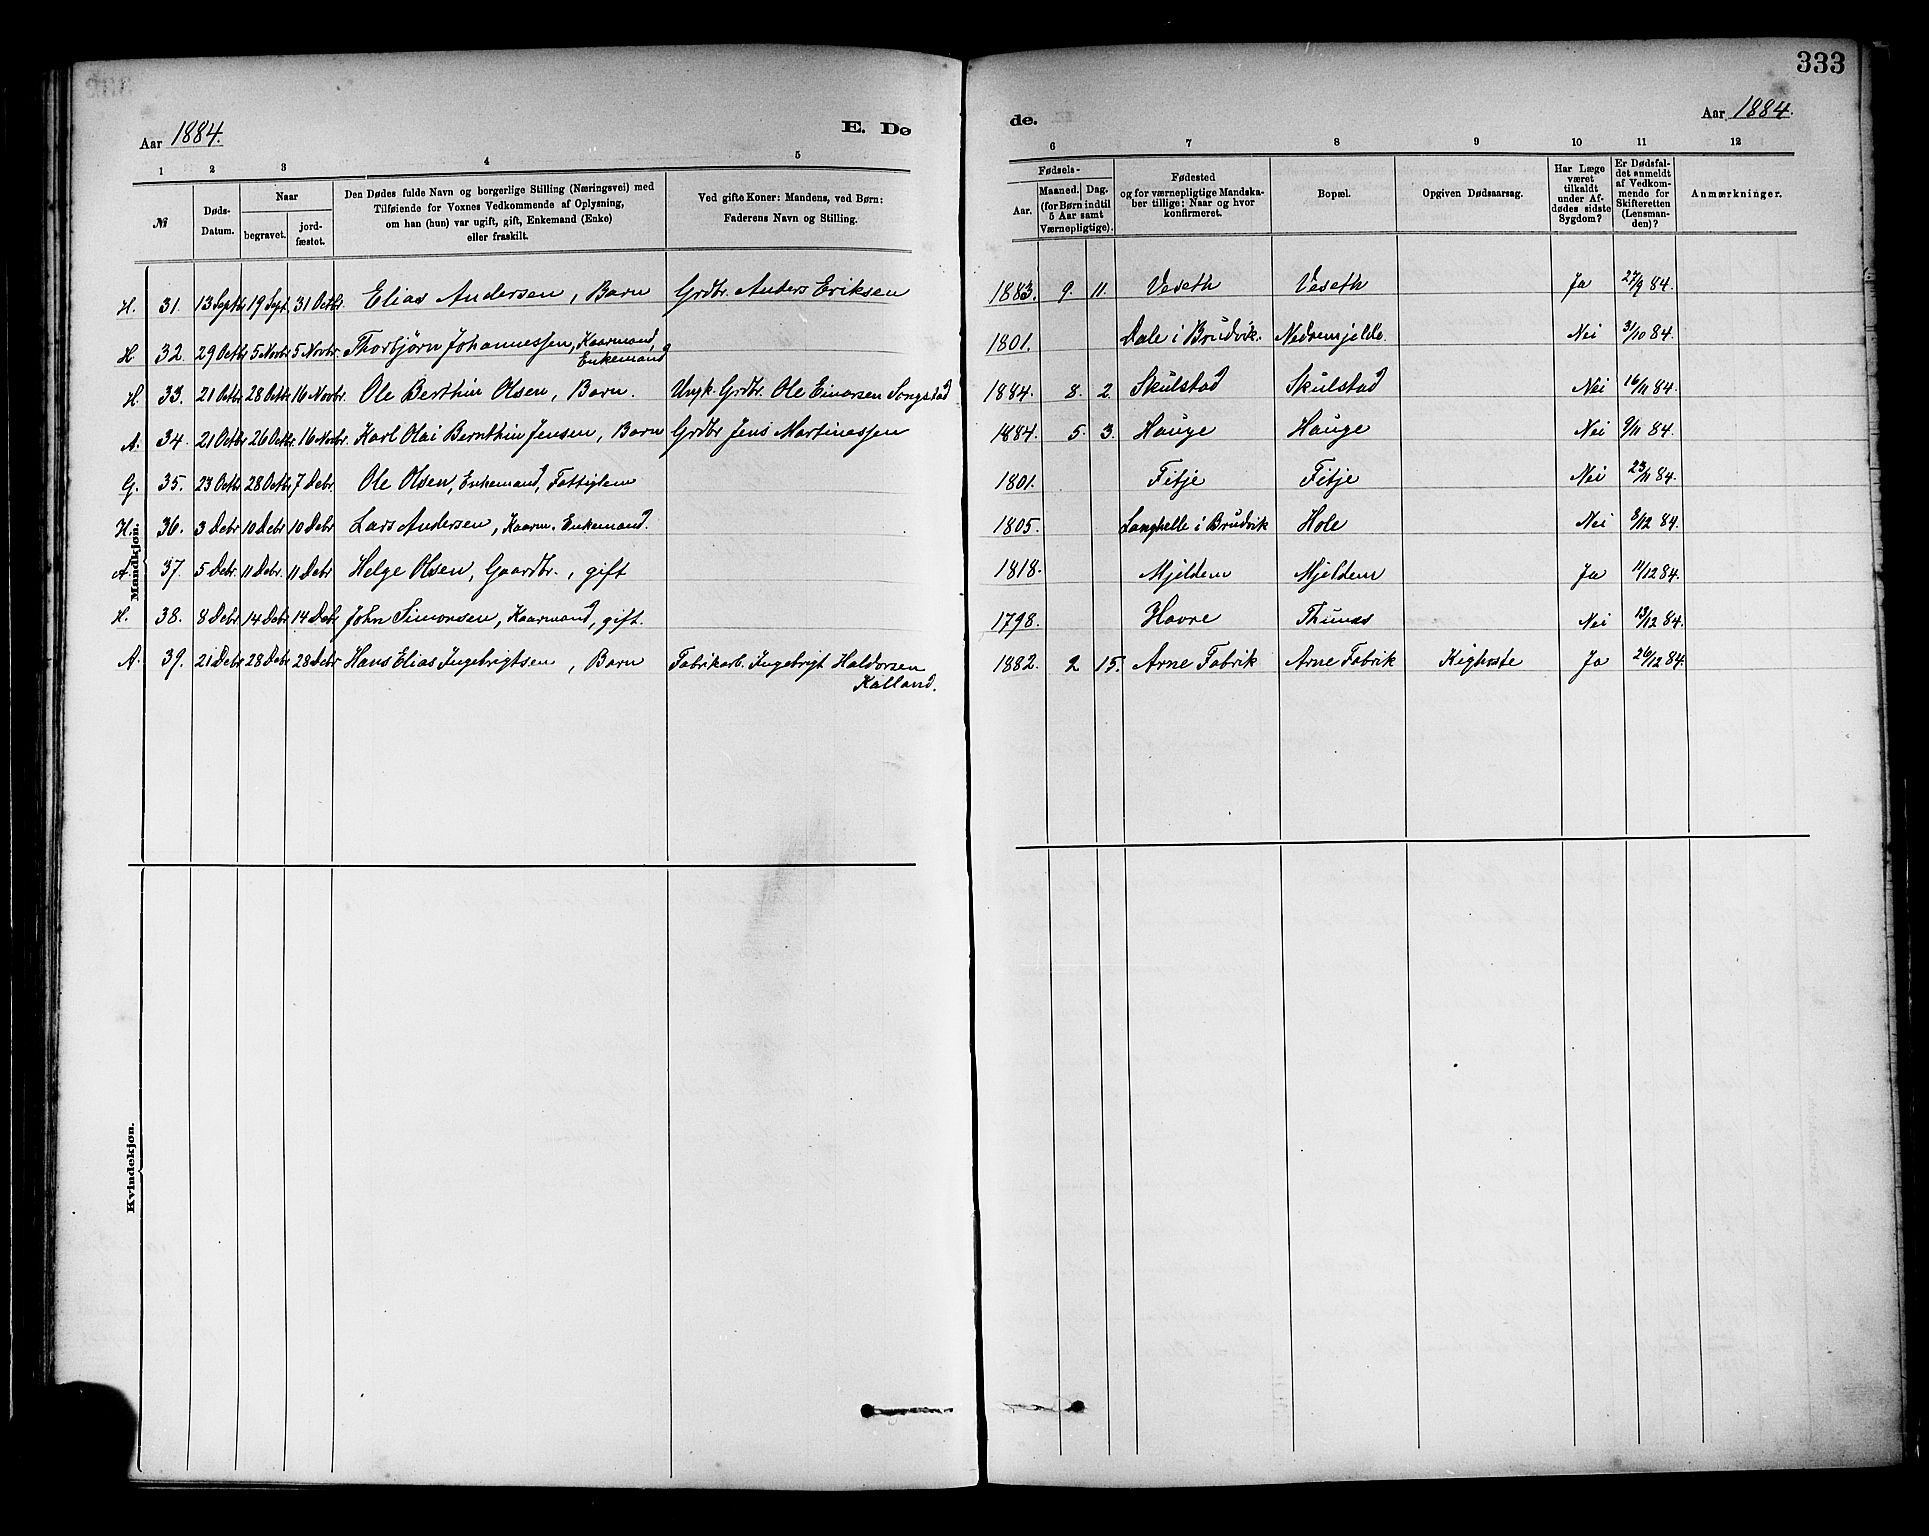 333
Aar 1884.
E. Dø
de.
Aar 1884.
1 2 3 4 5 6 7 8 9 10 11 12
№
Døds-Datum.
Naar
begravet.
jord-fæstet.
Den Dødes fulde Navn og borgerlige Stilling (Næringsvei) med
Tilføiende for Voxnes Vedkommende af Oplysning,
om han (hun) var ugift, gift, Enkemand (Enke)
eller fraskilt.
Ved gifte Koner: Mandens, ved Børn:
Faderens Navn og Stilling.
Fødsels-
Aar.
Maaned. Dag.
(for Børn indtil
5 Aar samt
Værnepligtige).
Fødested
og for værnepligtige Mandska-
ber tillige: Naar og hvor
konfirmeret.
Bopæl.
Opgiven Dødsaarsag.
Har Læge
været
tilkaldt
under Af-
dødes sidste
Sygdom?
Er Dødsfal-
det anmeldt
af Vedkom-
mende for
Skifteretten
(Lensman-
den)?
Anmærkninger.
Mandkjøn.
H. 31. 13 Septbr 19 Sept. 31 Octbr. Elias Andersen, Barn Grdbr. Anders Eriksen 1883. 9. 11. Veseth Veseth Ja 27/9 84.
H. 32. 29 Octbr 5 Novbr 5 Novbr. Thorbjørn Johannessen, Kaarmand, 1801. Dale i Brudvik. Nedremjelde. Nei 31/10 84.
Enkemand
H. 33. 21 Octbr 28 Octbr 16 Novbr. Ole Berthin Olsen, Barn. Ungk. Grdbr. Ole Einarsen Songstad 1884. 8. 2. Skulstad Skulstad Nei 16/11 84.
A. 34. 21 Octbr 26 Octbr 16 Novbr. Karl Olai Bernthin Jensen, Barn Grdbr Jens Martinessen 1884. 5. 3. Hauge Hauge Nei 9/11 84.
G. 35. 23 Octbr 28 Octbr 7 Debr Ole Olsen, Enkemand, Fattiglem 1801. Fitje Fitje Nei 23/11 84.
H. 36. 3 Debr 10 Debr 10 Debr Lars Andersen, Kaarm. Enkemand. 1805. Langhelle i Brudvik Hole Nei 8/12 84.
A. 37. 5 Debr. 11 Debr. 11 Debr Helge Olsen, Gaardbr., gift 1818. Mjeldem Mjeldem Ja 11/12 84.
H. 38. 8 Debr 14 Debr 14 Debr John Simonsen, Kaarmand, gift. 1798. Havre Thunæs Nei 13/12 84.
A. 39. 21 Debr 28 Debr 28 Debr Hans Elias Ingebrigtsen, Barn Fabrikarb. Ingebrigt Haldorsen 1882. 2 15. Arne Fabrik Arne Fabrik Kighoste Ja 26/12 84.
Kalland.
Kvindekjøn.